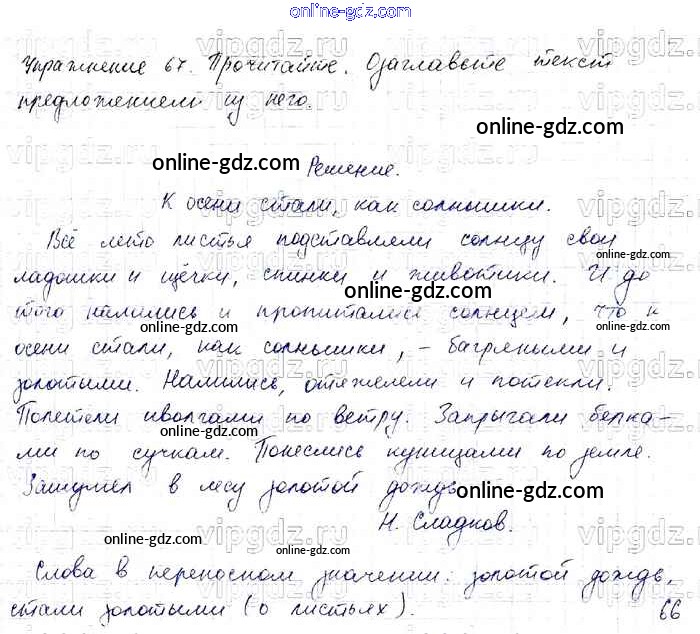 online-gdz.com
Упражнение 67. Прочитайте. Озаглавьте текст
предложением из него.
online-gdz.com
online-gdz.com
Решение.
К осени стали, как солнышки.
Всё лето листья подставляли солнцу свои
online-gdz.com
ладошки и щёчки, спинки и животики. И до
online-gdz.com
того налились и пропитались солнцем, что к
online-gdz.com
online-gdz.com
осени стали, как солнышки, – багряными и
золотыми. Налились, отяжелели и потекли.
online-gdz.com
Полетели иволгами по ветру. Запрыгали белка-
online-gdz.com
ми по сучкам. Понеслись куницами по земле.
Зашумел в лесу золотой дождь
online-gdz.com
Н. Сладков.
online-gdz.com
online-gdz.com
Слова в переносном значении: золотой дождь,
стали золотыми (о листьях).
66